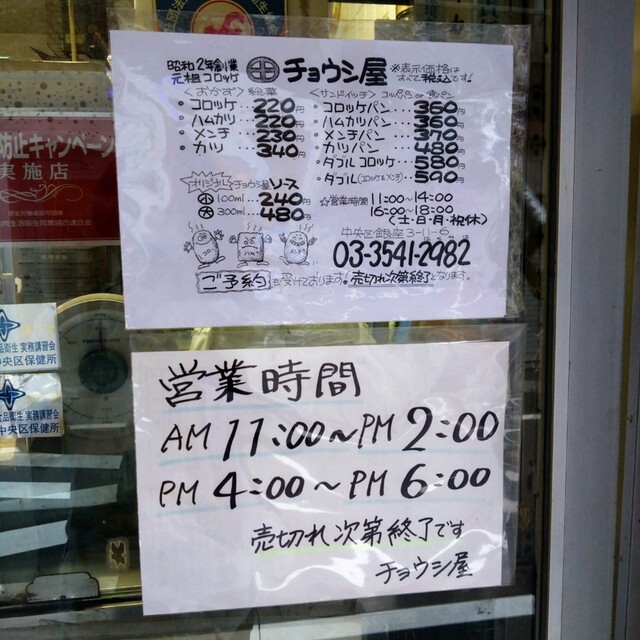 昭和2年創業
元祖コロッケ
チョウシ屋
※表示価格は
すべて税込です!
<おかず>惣菜
・コロッケ・・220円
・ハムカツ・・220円
・メンチ・・・230円
・カツ・・・・340円
<サンドイッチ>コッペパン or 食パン
・コロッケパン・・・360円
・ハムカツパン・・・360円
・メンチパン・・・370円
・カツパン・・・480円
・ダブルコロッケ・・580円
・ダブル(コロッケ&メンチ)・・590円
オリジナル チョウシ屋ソース
小 100ml・・・240円
大 300ml・・・480円
☆営業時間 11:00~14:00
16:00~18:00
(土・日・月・祝休)
中央区銀座3-11-6
03-3541-2982
ご予約も受けております!売切れ次第終了となります。
営業時間
AM 11:00~PM 2:00
PM 4:00~PM 6:00
売切れ次第終了です
チョウシ屋
防止キャンペーン
実施店
品衛生 実務講習会
中央区保健所
品衛生 実務講習会
中央区保健所